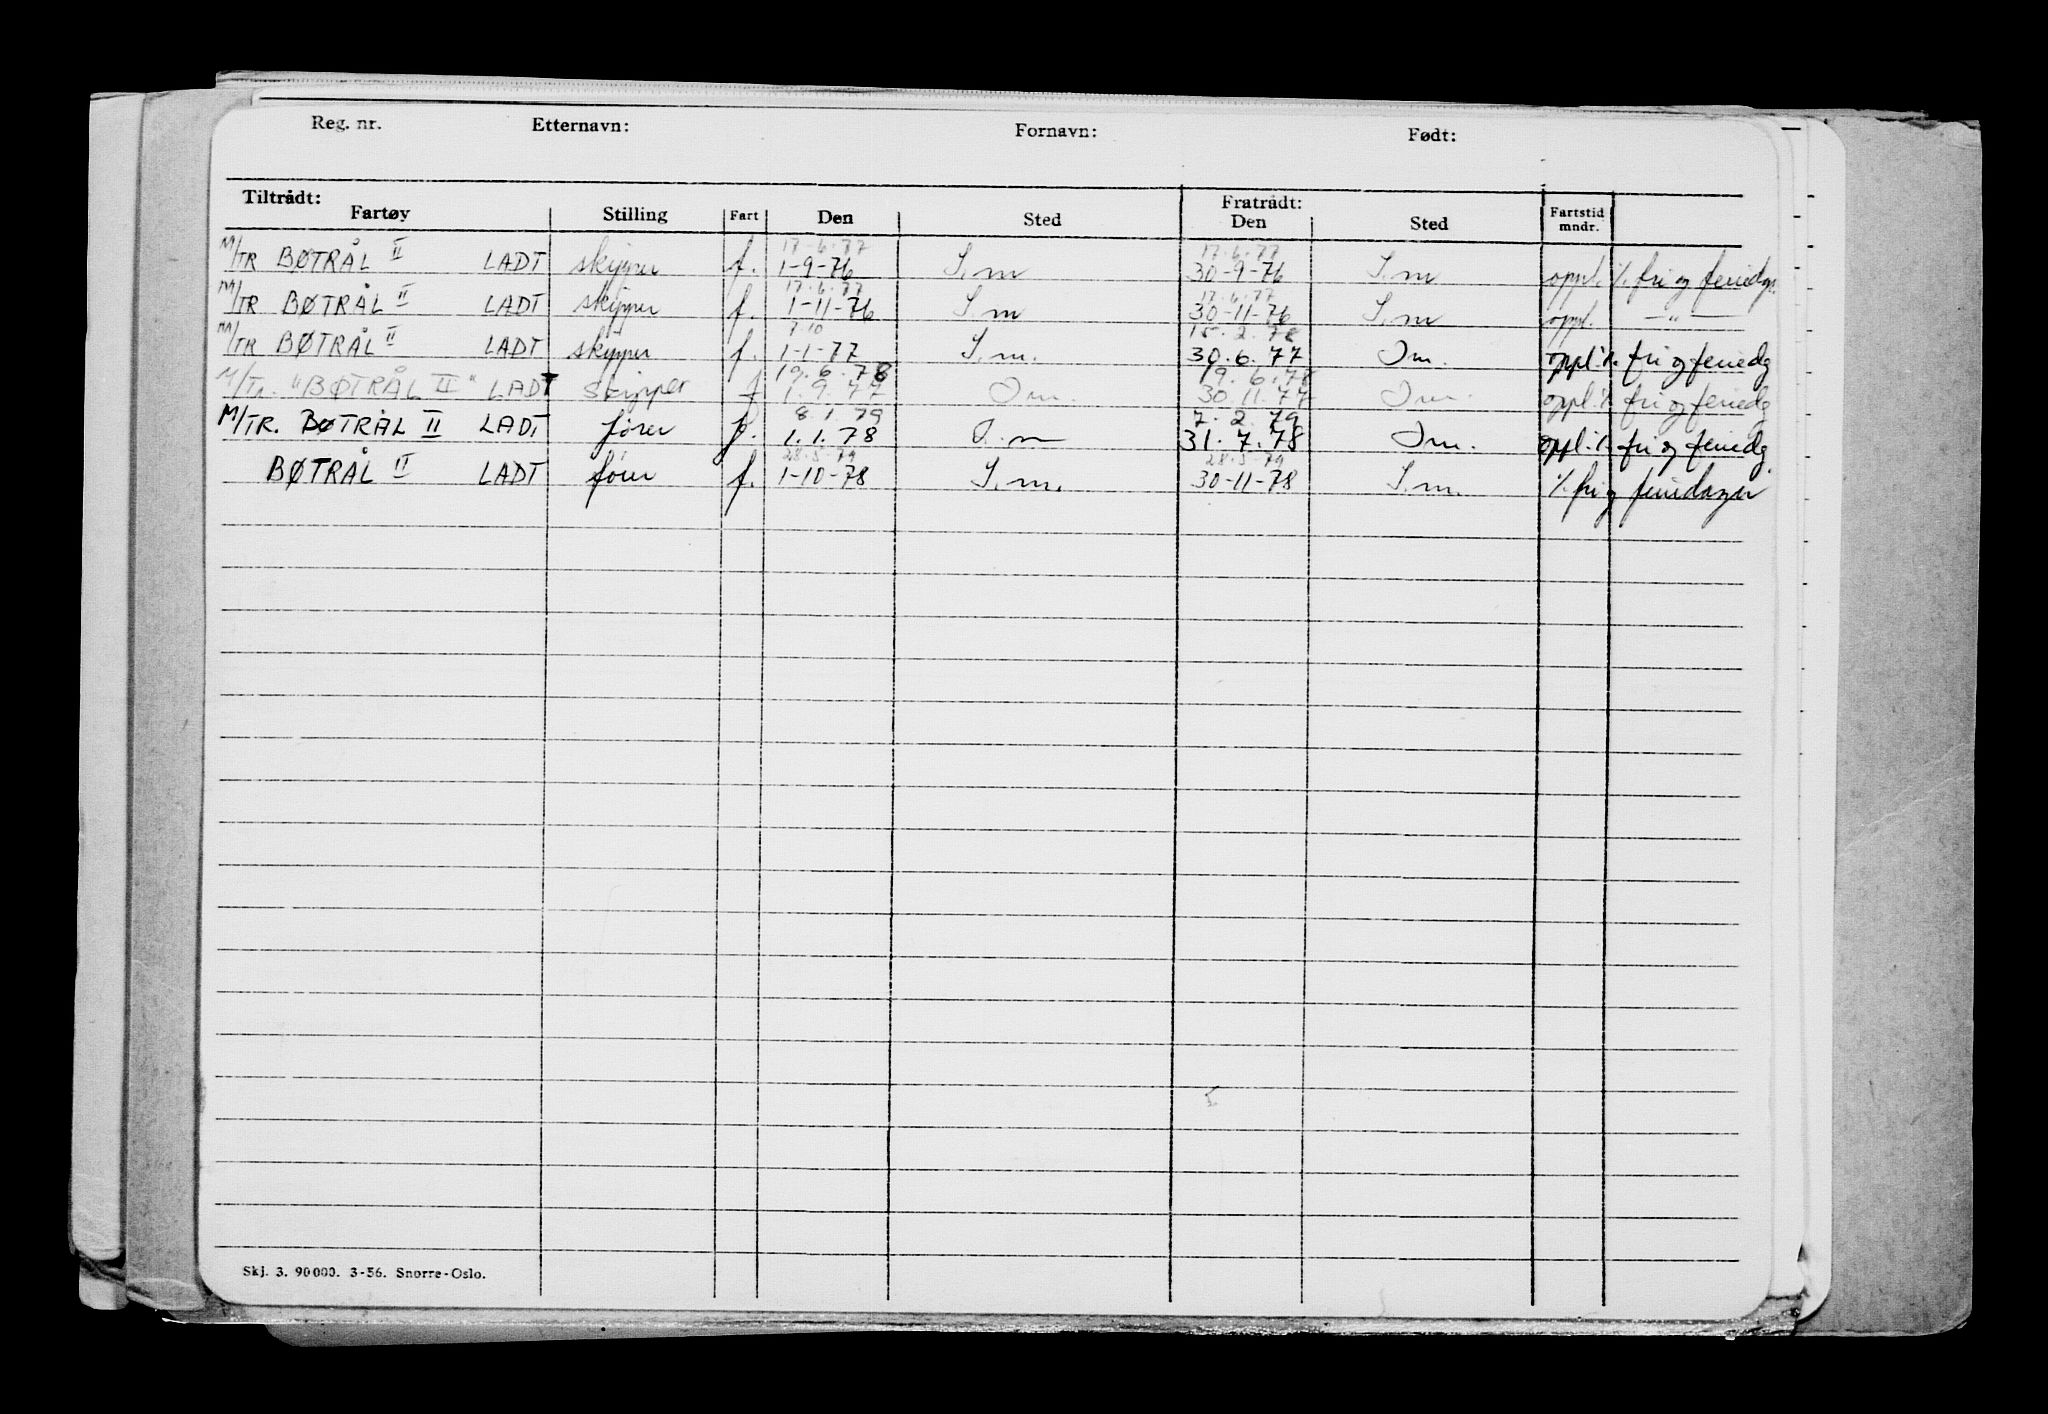 Reg. nr. Etternavn: Fornavn: Født:
Tiltrådt: Fratrådt:
Fartøy Stilling Fart Den Sted Den Sted Fartstid mndr.
17-6-77 17.6.77
M/TR BØTRÅL II LADT skipper f. 1-9-76 S.m 30-9-76 S.m oppl. % fri og feriedgr.
17.6.77 17.6.77
M/TR BØTRÅL II LADT skipper f. 1-11-76 S.m 30-11-76 S.m oppl. — " —
7.10 15.2.78
M/TR BØTRÅL II LADT skipper f. 1-1-77 S.m. 30.6.77 Sm. oppl. % fri og feriedg
19.6.78 19.6.78
M/Tr. "BØTRÅL II" LADT Skipper f 1.9.77 Sm. 30.11.77 Sm. oppl. % fri og feriedg
8.1.79 7.2.79
M/TR. BØTRÅL II LADT fører f. 1.1.78 S.m 31.7.78 Sm. oppl. % fri og feriedg.
28.5.79 28.5.79
BØTRÅL II LADT fører f. 1-10-78 S.m. 30-11-78 S.m. % fri og feriedager
5
Skj. 3. 90000. 3-56. Snorre-Oslo.